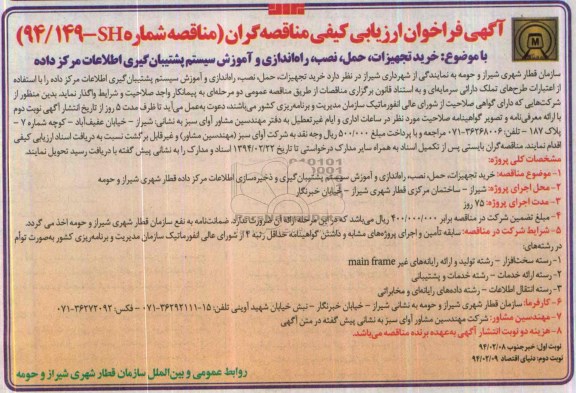 آگهی فراخوان ارزیابی کیفی مناقصه‌گران (مناقصه شماره SH-۹۴/۱۴۹)
با موضوع: خرید تجهیزات، حمل، نصب، راه‌اندازی و آموزش سیستم پشتیبان‌گیری اطلاعات مرکز داده
سازمان قطار شهری شیراز و حومه به نمایندگی از شهرداری شیراز در نظر دارد خرید تجهیزات، حمل، نصب، راه‌اندازی و آموزش سیستم پشتیبان‌گیری اطلاعات مرکز داده را با استفاده
از اعتبارات طرح‌های تملک دارائی سرمایه‌ای و به استناد قانون برگزاری مناقصات از طریق مناقصه عمومی دو مرحله‌ای به پیمانکار واجد صلاحیت و شرایط واگذار نماید. بدین منظور از
شرکت‌هایی که دارای گواهی صلاحیت از شورای عالی انفورماتیک سازمان مدیریت و برنامه‌ریزی کشور می‌باشند، دعوت به‌عمل می‌آید تا ظرف مدت ۵ روز از تاریخ انتشار آگهی نوبت دوم
با ارائه معرفی‌نامه و تصویر گواهینامه صلاحیت مورد نظر در ساعات اداری و ایام غیرتعطیل به دفتر مهندسین مشاور آوای سبز به نشانی: شیراز – خیابان عفیف‌آباد – کوچه شماره ۷ –
پلاک ۱۸۷ – تلفن: ۳۶۲۶۸۰۰۶-۰۷۱ مراجعه و با پرداخت مبلغ ۵۰۰/۰۰۰ ریال وجه نقد به شرکت آوای سبز (مهندسین مشاور) و غیرقابل برگشت نسبت به دریافت اسناد ارزیابی کیفی
اقدام نمایند. مناقصه‌گران بایستی پس از تکمیل اسناد به همراه سایر مدارک درخواستی تا تاریخ ۱۳۹۴/۰۲/۲۲ اسناد و مدارک را به نشانی پیش گفته با دریافت رسید تحویل نمایند.
مشخصات کلی پروژه:
۱- موضوع مناقصه: خرید تجهیزات، حمل، نصب، راه‌اندازی و آموزش سیستم پشتیبان‌گیری و ذخیره‌سازی اطلاعات مرکز داده قطار شهری شیراز و حومه
۲- محل اجرای پروژه: شیراز – ساختمان مرکزی قطار شهری شیراز – خیابان خبرنگار
۳- مدت اجرای پروژه: ۷۵ روز
۴- مبلغ تضمین شرکت در مناقصه برابر ۴۰۰/۰۰۰/۰۰۰ ریال می‌باشد که در این مرحله ارائه آن ضرورت ندارد. ضمانت‌نامه به نفع سازمان قطار شهری شیراز و حومه اخذ می گردد.
۵- شرایط شرکت در مناقصه: سابقه تأمین و اجرای پروژه‌های مشابه و داشتن گواهینامه حداقل رتبه ۴ از شورای عالی انفورماتیک سازمان مدیریت و برنامه‌ریزی کشور به‌صورت توأم
در رشته‌های:
۱- رسته سخت‌افزار – رشته تولید و ارائه رایانه‌های غیر main frame
۲- رسته ارائه خدمات – رشته خدمات و پشتیبانی
۳- رسته انتقال اطلاعات – رشته داده‌های رایانه‌ای و مخابراتی
۶- کارفرما: سازمان قطار شهری شیراز و حومه به نشانی: شیراز – خیابان خبرنگار – نبش خیابان شهید آوینی تلفن: ۱۵-۳۶۲۹۲۱۱۱-۰۷۱ – فکس: ۳۶۲۷۲۰۹۲-۰۷۱
۷- مهندسین مشاور: شرکت مهندسین مشاور آوای سبز به نشانی پیش گفته در متن آگهی
۸- هزینه دو نوبت انتشار آگهی به‌عهده برنده مناقصه می‌باشد.
نوبت اول: خبر جنوب ۹۴/۰۲/۰۸
نوبت دوم: دنیای اقتصاد ۹۴/۰۲/۰۹
روابط عمومی و بین‌الملل سازمان قطار شهری شیراز و حومه